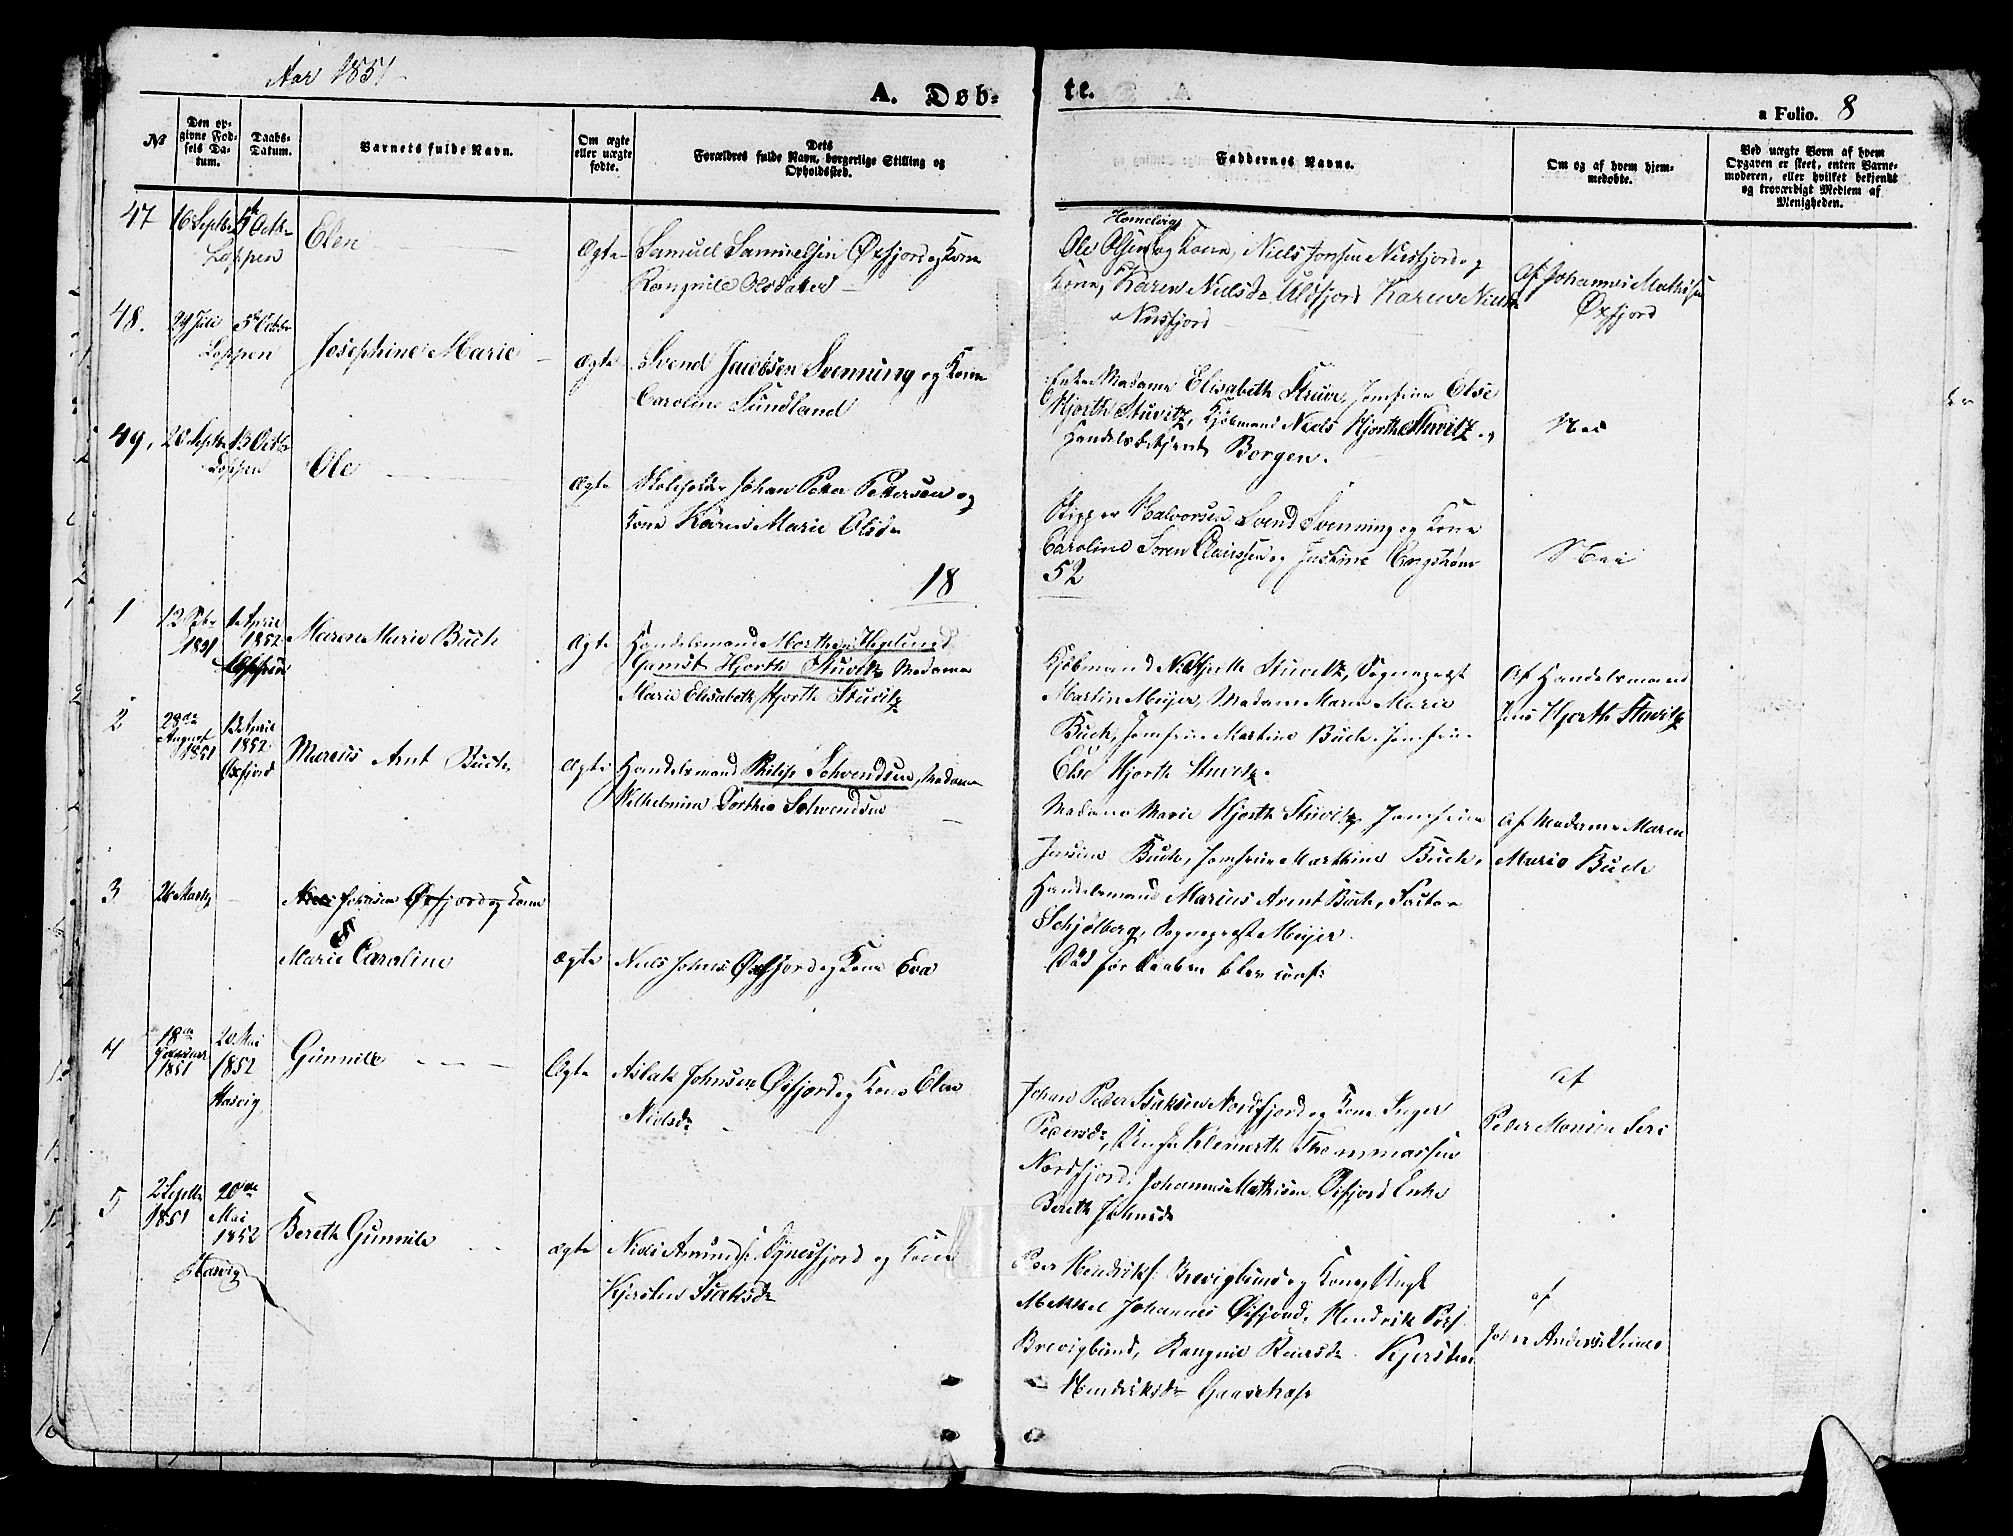 Aar 1851
A. Døb=
te.
a Folio. 8
№
Den op-
givne Fød-
sels Da-
tum.
Daabs-
Datum.
Barnets fulde Navn.
Om ægte
eller uægte
fødte.
Dets
Forældres fulde Navn, borgerlige Stilling og
Opholdssted.
Faddernes Navne.
Om og af hvem hjem-
medøbte.
Ved uægte Børn af hvem
Opgaven er skeet, enten Barne-
moderen, eller hvilket bekjendt
og troværdigt Medlem af
Menigheden.
47
16 Septbr
5te Octbr
Loppen
Elen
Ægte
Samuel Samuelsen Øxfjord og Kone
Rangnile Olsdatter
Ole Olsen og Kone, Niels Jonsen Nusfjord og
Kone, Karen Nielsdr Ulsfjord Karen Niels
Nusfjord
Af Johannes Mathisen
Øxfjord
48.
29 Juli
5te Octbr
Loppen
Josephine Marie
Ægte
Svend Jacobsen Svenning og Kone
Caroline Sundland
Enke Madame Elisabeth Struve, Jomfrue Else
Hjorth Stuvitz, Kjøbmand Niels Hjorth Stuvitz og
Handelsbetjent Borgen.
Nei
49,
20 Septbr
13 Octbr
Loppen
Ole
Ægte
Skoleholder Johan Peter Pettersen og
Kone Karen Marie Olsdr
Skipper Halvorsen, Svend Svenning og Kone
Caroline Soren Claussen og Justine Engstrøm
Nei
18
52
1
12 Febr
1851
1 April
1852
Maren Marie Buch
Ægte
Handelsmand Morthen Heglund
Gamst Hjorth Stuvitz Madame
Marie Elisabeth Hjorth Stuvitz
Kjøbmand Niels Hjorth Stuvitz, Sognepræst
Martin Meijer, Madame Maren Marie
Buch, Jomfrue Martine Buch, Jomfrue
Else Hjorth Stuvitz.
Af Handelsmand
Jens Hjorth Stuvitz
2
28de
August
1851
13 April
1852
Øxfjord
Marcus Arnt Buch
Ægte
Handelsmand Philip Schvendsen, Madame
Wilhelmine Dorthea Schvendsen
Madame Marie Hjorth Stuvitz, Jomfrue
Jensine Buch, Jomfrue Marthine Buch,
Handelsmand Marius Arent Buch, Factor
Schjølberg, Sognepræst Meijer.
Af Madame Maren
Marie Buch
3
26 Marts
Niels Johnsen Øxfjord og Kone
Marie Caroline
Ægte
Niels Johns Øxfjord og Kone Eva
Død før Daaben blev
4
18de
Januar
1851
20 Mai
1852
Hasvig
Gunnile
Ægte
Aslak Johnsen Øxfjord og Kone Elen
Nielsdr
Johan Peder Isaksen Nordfjord og Kone Inger
Pedersdr, Klemeth Thommassen
Nordfjord, Johannes Mathisen Øxfjord Enke
Bereth Johnsdr
Af
Peder Monsen
5
2 Septbr
1851
20de
Mai
1852
Hasvig
Bereth Gunnile
Ægte
Niels Amunds. og Kone
Kjersten Isaksdr
Peder Hendriks. Brevigbund og Kone,
Mekkel Johannes Øxfjord, Hendrik Peders.
Brevigbund, Rangnil Kjersten
Hendriksdr
af
Anders